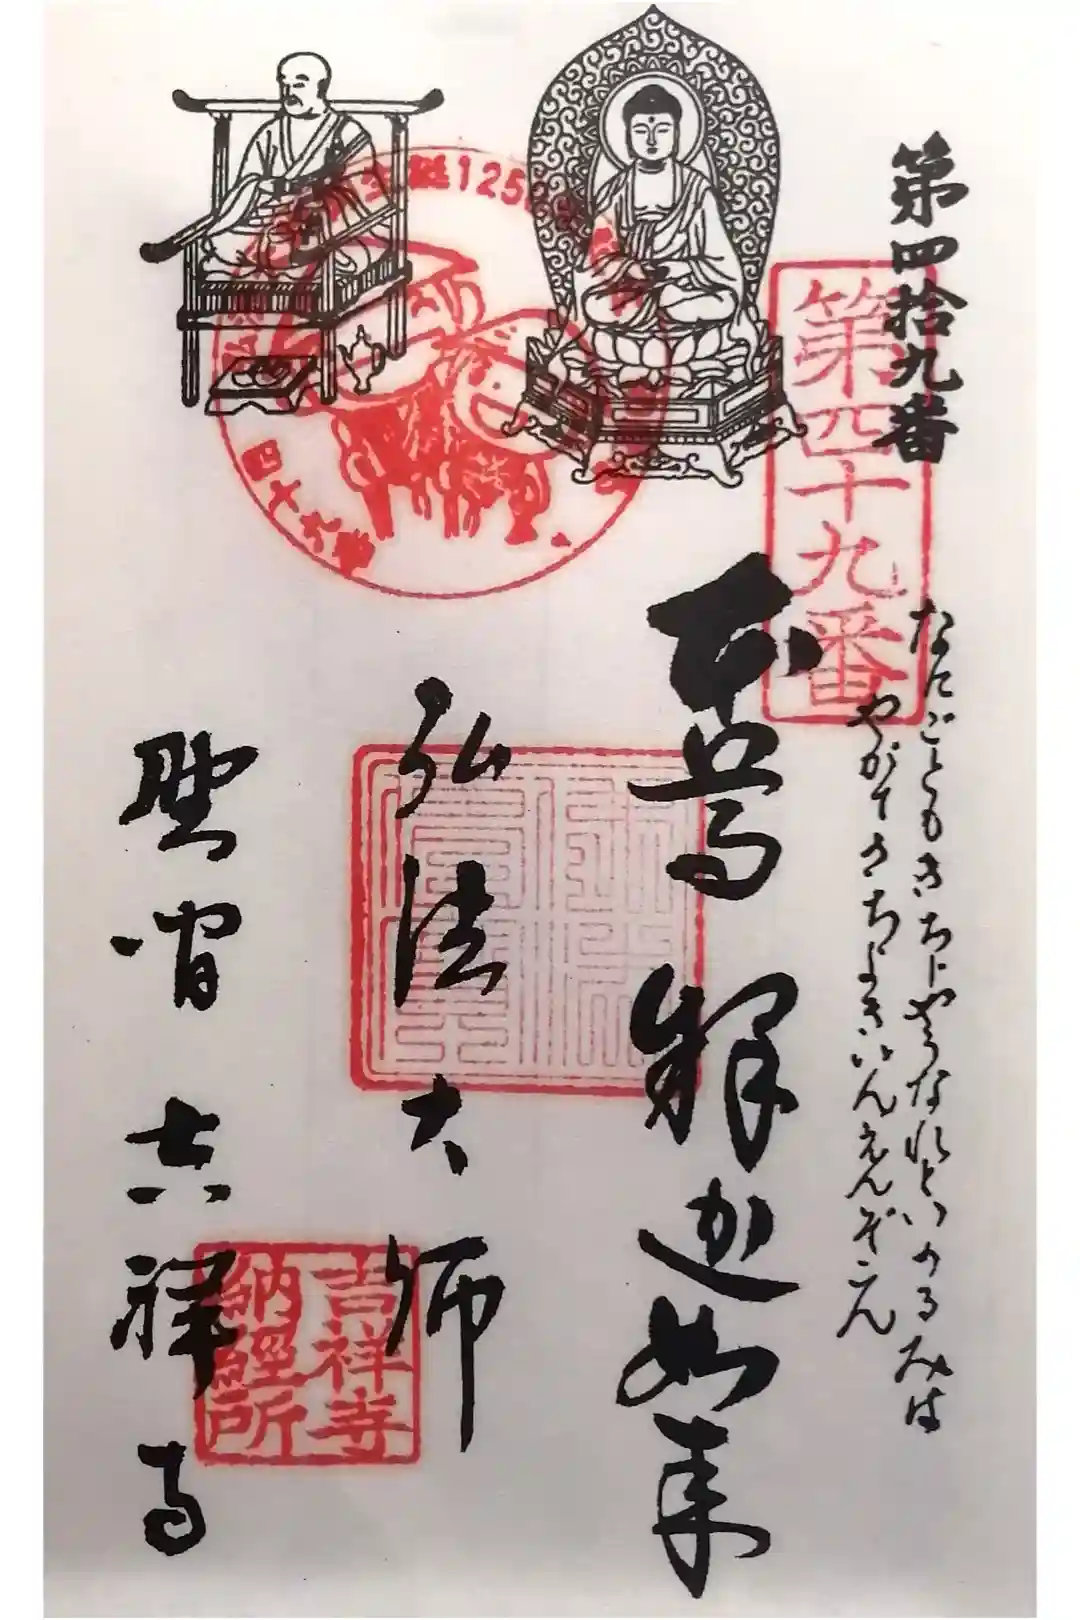 第四拾九番
第四十九番
なにごともきちじやうなれといのるみは
やがてきちよきいんえんぞこん
本尊 釋迦如来
弘法大師
吉祥寺
吉祥寺
納経所
誕1250
四十九番